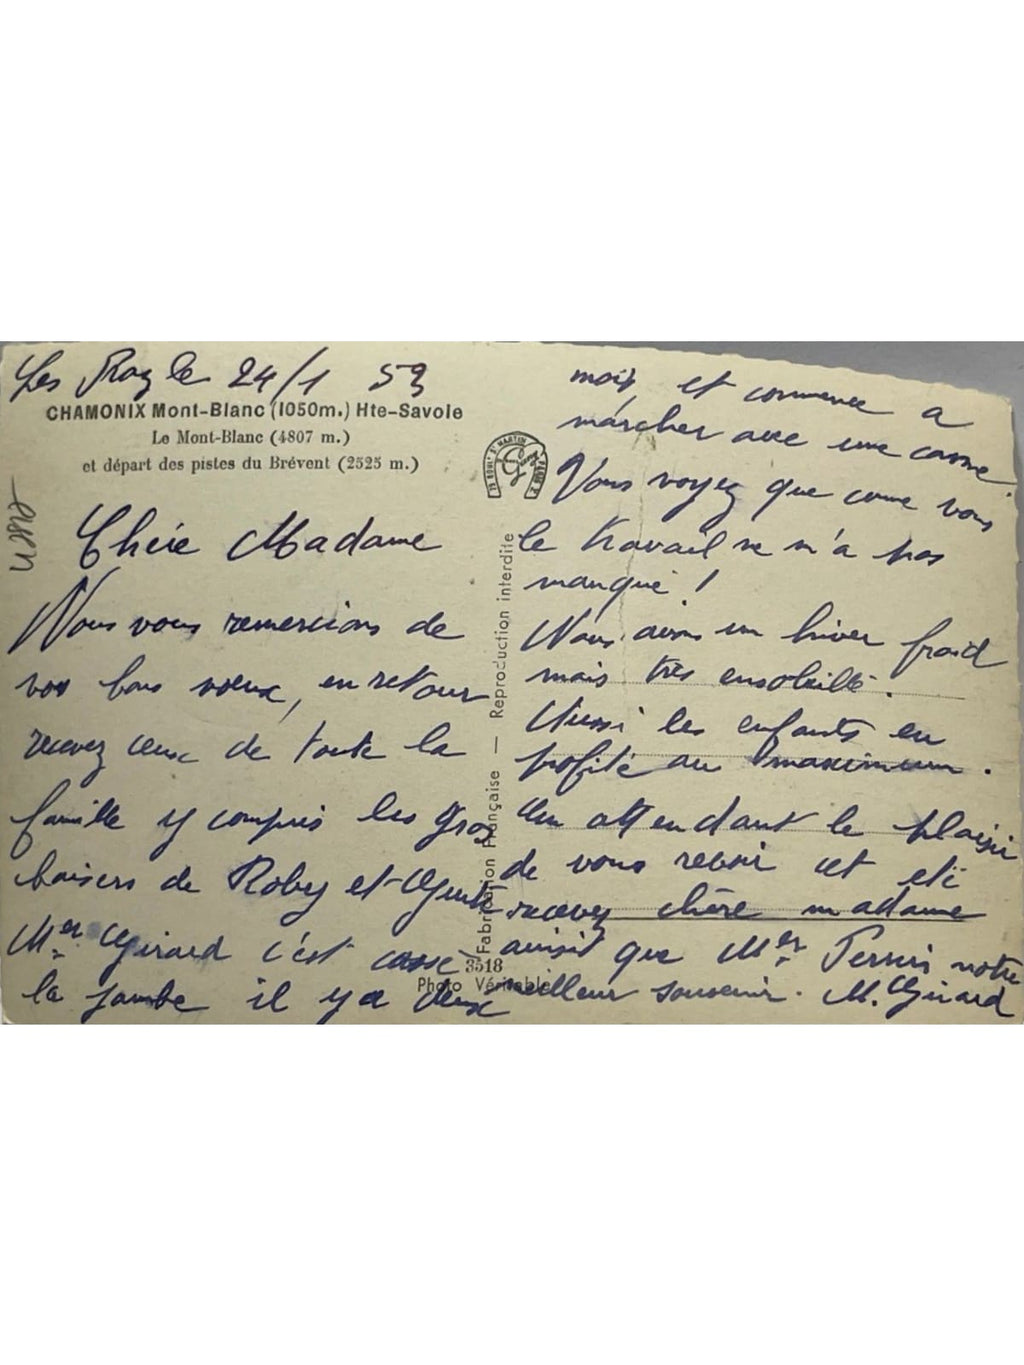 Les Praz le 24/1 53
CHAMONIX Mont-Blanc (1050m.) Hte-Savoie
Le Mont-Blanc (4807 m.)
et départ des pistes du Brévent (2525 m.)
Chére Madame
Nous vous remercions de
vos bons voeux, en retour
recevez ceux de toute la
famille y compris les gros
baisers de Roby et
Mer Girard c'est casse
la jambe il y a deux
mois et commence a
marcher avec une canne
Vous voyez que comme vous
le travail ne m'a pas
manqué !
Nous avons un hiver froid
mais très ensoleillé.
Aussi les enfants en
profite au maximum.
En attendant le plaisir
de vous revoir cet été
recevez chère madame
ainsit que Mer Perris notre
meilleur souvenir. M. Girard
Fabrication Française — Reproduction interdite
3518
Photo Véritable